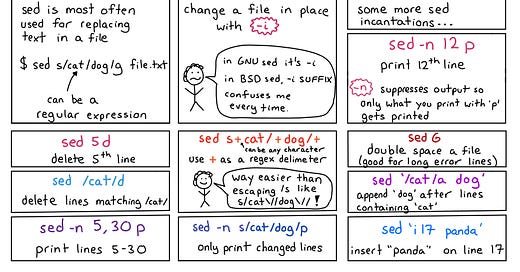 sed is most often
used for replacing
text in a file
$ sed s/cat/dog/g file.txt
can be a
regular expression
change a file in place
with -i
in GNU sed it's -i
in BSD sed, -i SUFFIX
confuses me
every time.
some more sed
incantations...
sed -n 12 p
print 12th line
-n suppresses output so
only what you print with 'p'
gets printed
sed 5 d
delete 5th line
sed /cat/d
delete lines matching /cat/
sed -n 5,30 p
print lines 5-30
sed s+cat/+dog/+
can be any character
use + as a regex delimeter
way easier than
escaping / s like
s/cat\//dog\// !
sed -n s/cat/dog/p
only print changed lines
sed G
double space a file
(good for long error lines)
sed '/cat/a dog'
append 'dog' after lines
containing 'cat'
sed 'i 17 panda'
insert "panda" on line 17